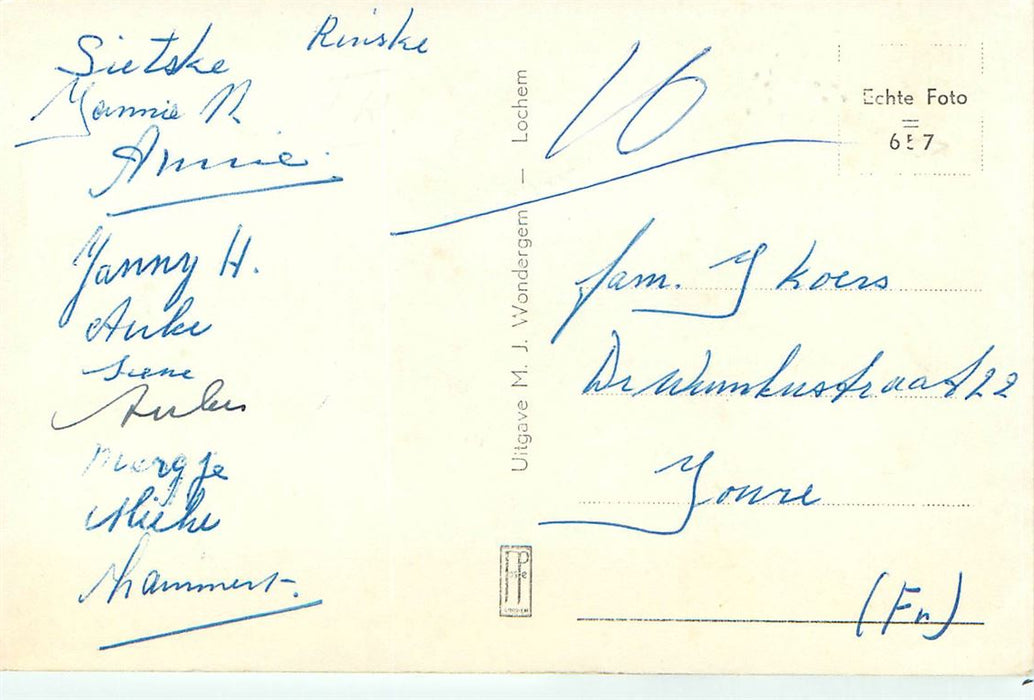 Sietske
Rinske
Jannie R
Annie.
Janny H.
Anke
Siene
Anke
Margje
Mieke
Lammert.
Uitgave M. J. Wondergem — Lochem
Echte Foto
657
16
fam. Y Koers
Dr Wumkesstraat 22
Joure
(Fr)